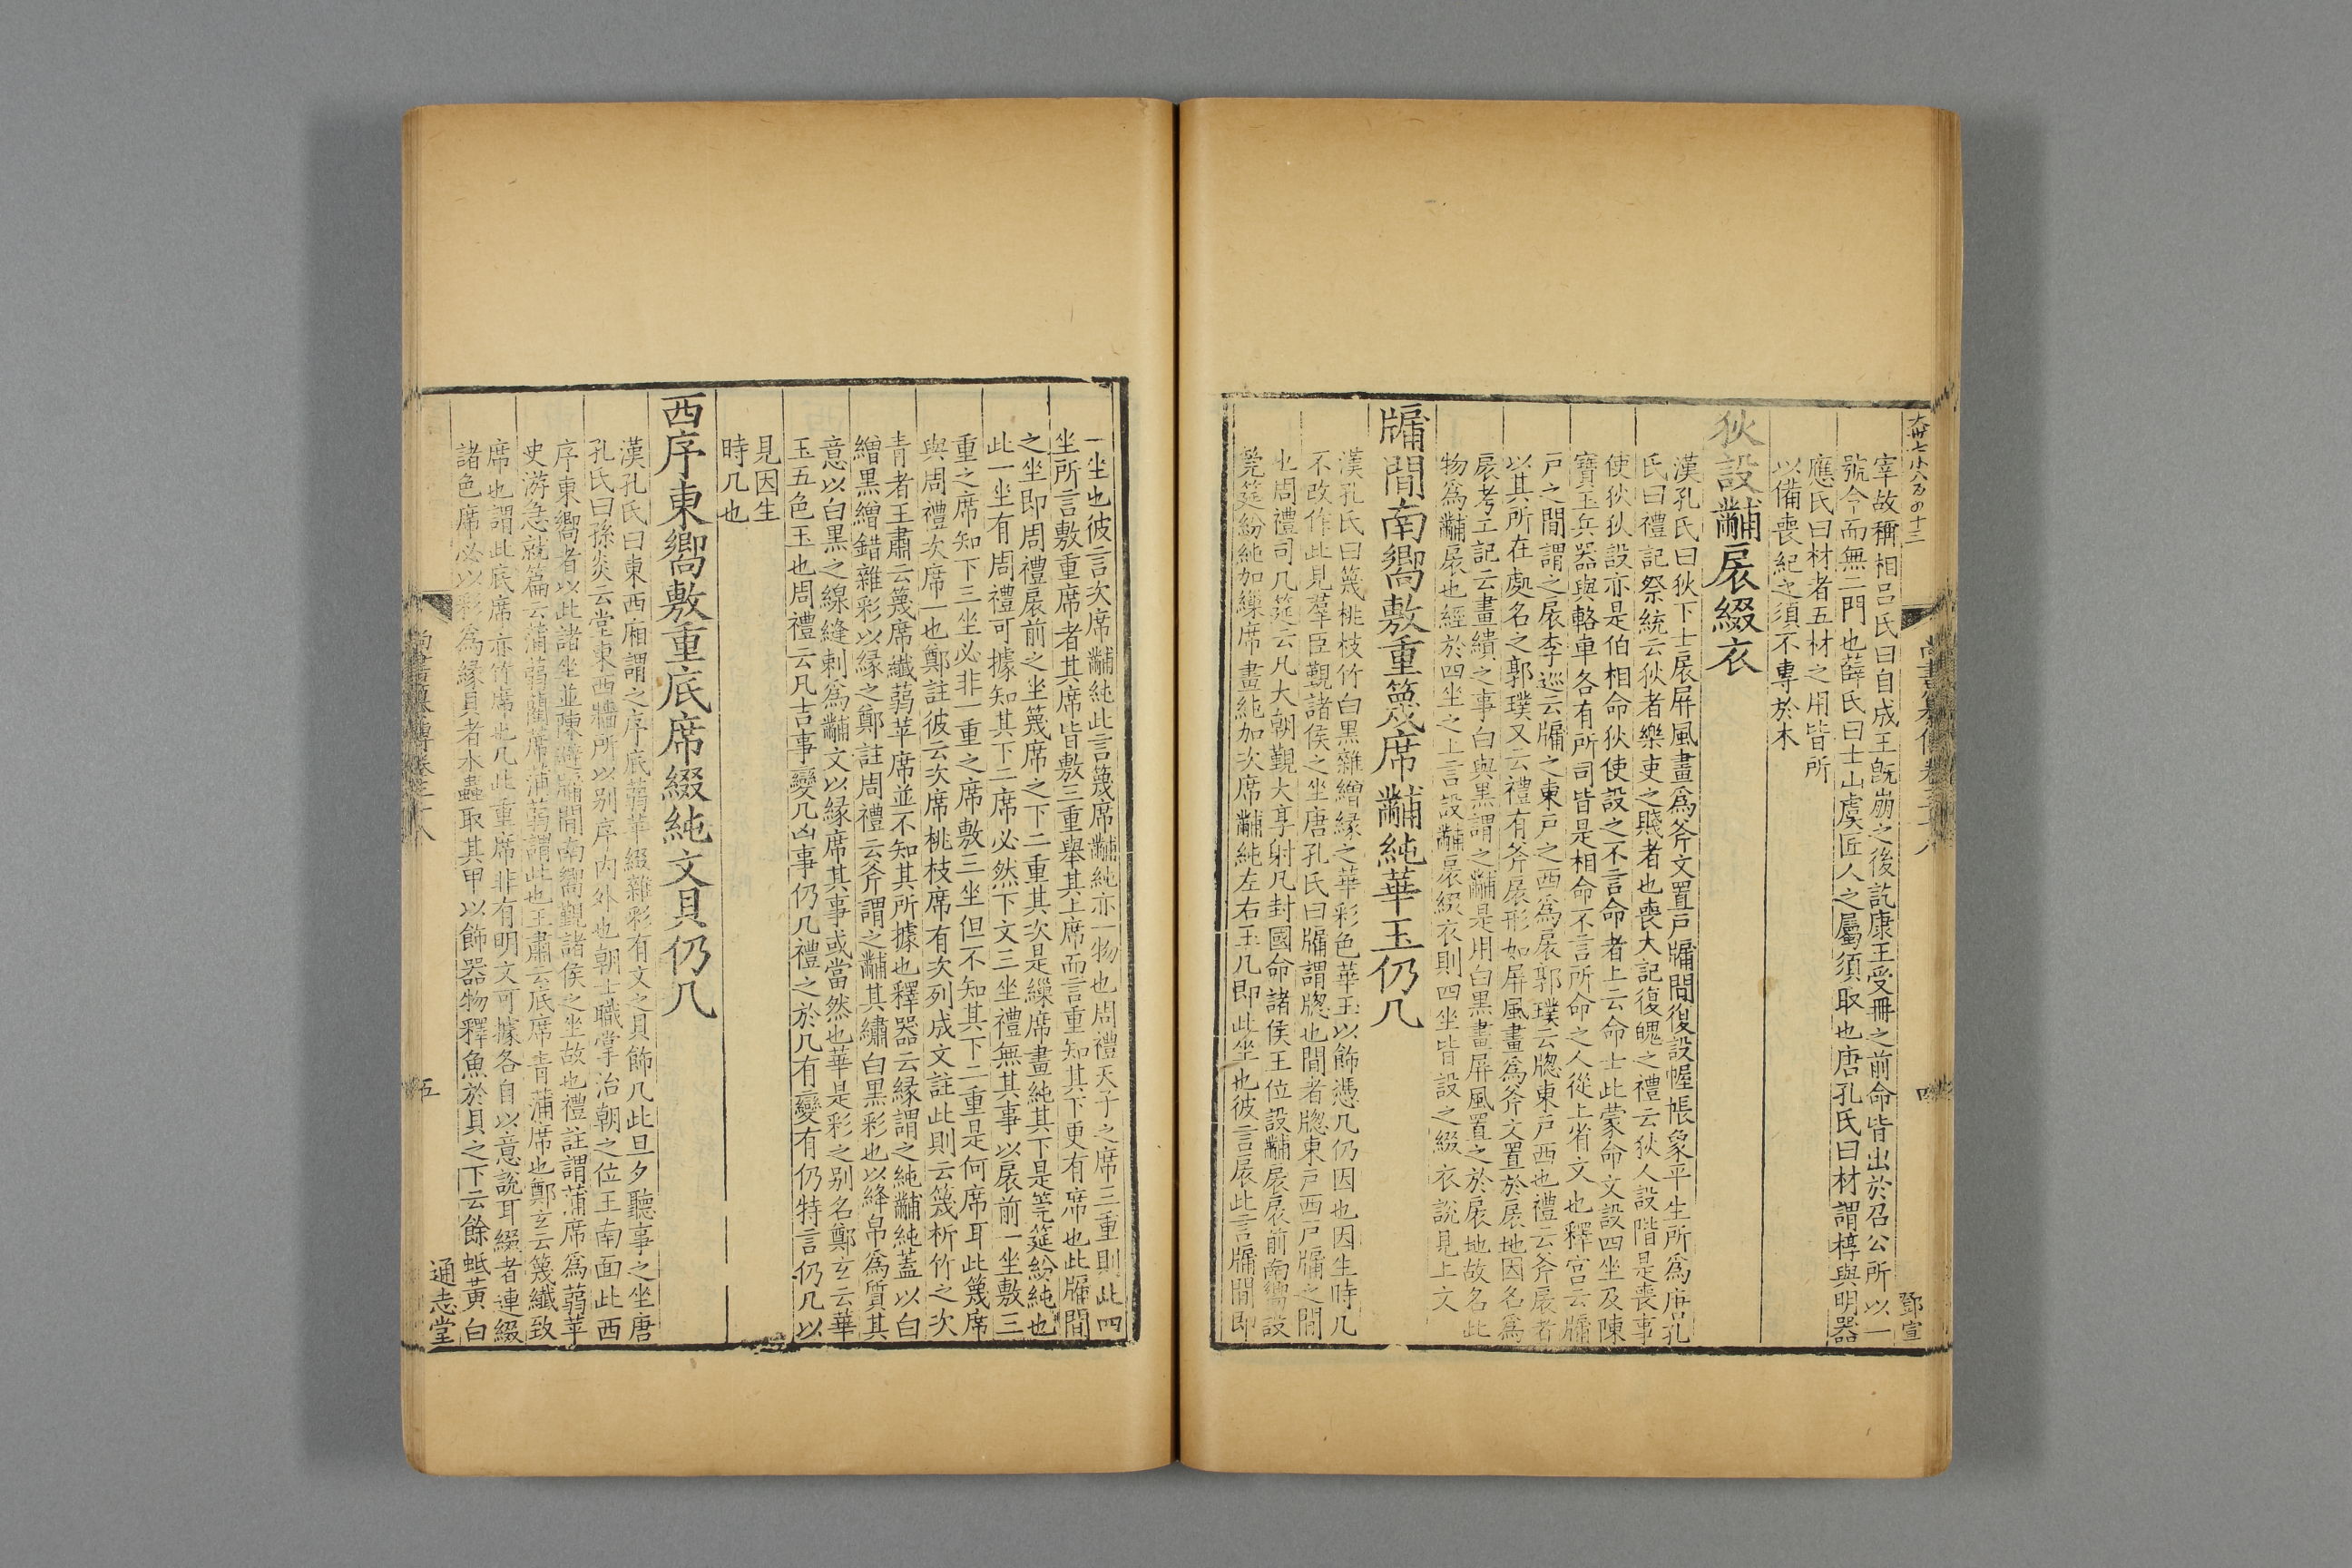 宰故稱相呂氏曰自成王旣崩之後訖康王受冊之前命皆出於召公所以一
號令而無二門也薛氏曰士山虞匠人之屬須取也唐孔氏曰材謂椁與明器
應氏曰材者五材之用皆所
以備喪紀之須不專於木
狄設黼扆綴衣
漢孔氏曰狄下士扆屏風畫爲斧文置戸牖間復設幄帳象平生所爲唐孔
氏曰禮記祭統云狄者樂吏之賤者也喪大記復魄之禮云狄人設階是喪事
使狄狄設亦是伯相命狄使設之不言命者上云命士此蒙命文設四坐及陳
寶玉兵器與輅車各有所司皆是相命不言所命之人從上省文也釋宮云牖
戸之間謂之扆李巡云牖之東戸之西爲扆郭璞云牕東戸西也禮云斧扆者
以其所在處名之郭璞又云禮有斧扆形如屏風畫爲斧文置於扆地因名爲
扆考工記云畫繢之事白與黑謂之黼是用白黑畫屏風置之於扆地故名此
物爲黼扆也經於四坐之上言設黼扆綴衣則四坐皆設之綴衣說見上文
牖間南嚮敷重篾席黼純華玉仍几
漢孔氏曰篾桃枝竹白黑雜繒緣之華彩色華玉以飾憑几仍因也因生時几
不改作此見羣臣覲諸侯之坐唐孔氏曰牖謂牕也間者牕東戸西戸牖之間
也周禮司几筵云凡大朝覲大享射凡封國命諸侯王位設黼扆扆前南嚮設
莞筵紛純加繅席畫純加次席黼純左右玉几即此坐也彼言扆此言牖間即
一坐也彼言次席黼純此言篾席黼純亦一物也周禮天子之席三重則此四
坐所言敷重席者其席皆敷三重舉其上席而言重知其下更有席也此牖間
之坐即周禮扆前之坐篾席之下二重其次是繅席畫純其下是莞筵紛純也
此一坐有周禮可據知其下二席必然下文三坐禮無其事以扆前一坐敷三
重之席知下三坐必非一重之席敷三坐但不知其下二重是何席耳此篾席
與周禮次席一也鄭註彼云次席桃枝席有次列成文註此則云篾析竹之次
青者王肅云篾席纖蒻苹席並不知其所據也釋器云緣謂之純黼純蓋以白
繒黑繒錯雜彩以緣之鄭註周禮云斧謂之黼其繡白黑彩也以絳帛爲質其
意以白黑之線縫刺爲黼文以緣席其事或當然也華是彩之别名鄭玄云華
玉五色玉也周禮云凡吉事變几凶事仍几禮之於几有變有仍特言仍几以
見因生
時几也
西序東嚮敷重底席綴純文貝仍几
漢孔氏曰東西廂謂之序底蒻苹綴雜彩有文之貝飾几此旦夕聽事之坐唐
孔氏曰孫炎云堂東西牆所以别序内外也朝士職掌治朝之位王南面此西
序東嚮者以此諸坐並陳避牖間南嚮覲諸侯之坐故也禮註謂蒲席爲蒻苹
史游急就篇云蒲蒻藺席蒲蒻謂此也王肅云底席青蒲席也鄭玄云篾纖致
席也謂此底席亦竹席也凡此重席非有明文可據各自以意說耳綴者連綴
諸色席必以彩爲緣貝者水蟲取其甲以飾器物釋魚於貝之下云餘蚳黃白
通志堂
五
四
鄧宣